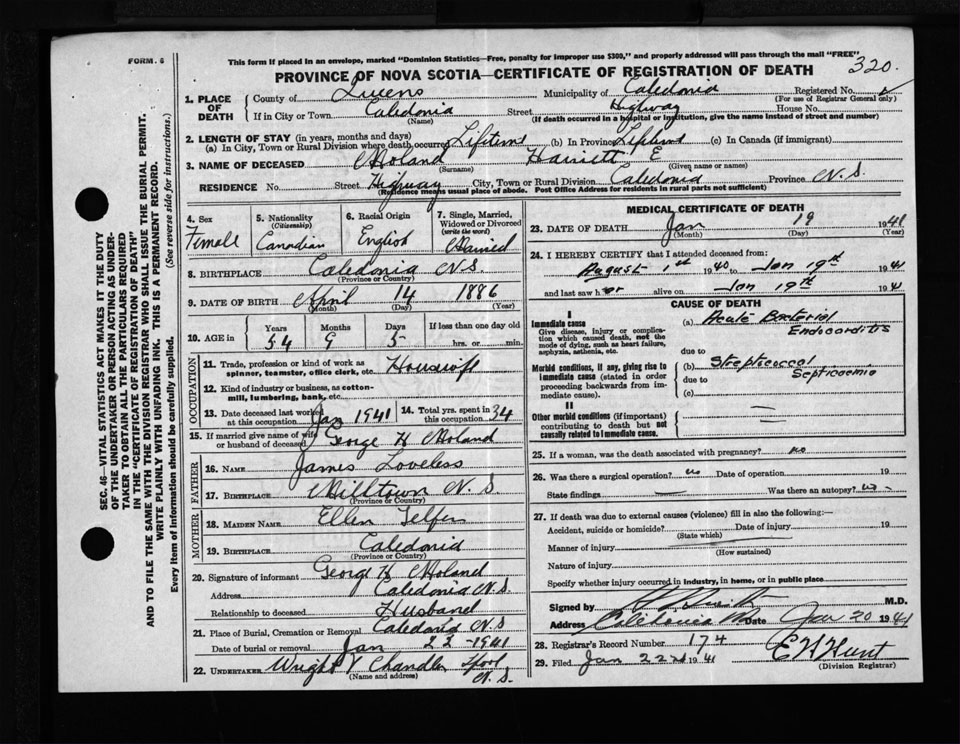 FORM. 6
This form if placed in an envelope, marked "Dominion Statistics—Free, penalty for improper use $300," and properly addressed will pass through the mail "FREE"
320.
PROVINCE OF NOVA SCOTIA—CERTIFICATE OF REGISTRATION OF DEATH
SEC. 46—VITAL STATISTICS ACT MAKES IT THE DUTY
OF THE UNDERTAKER OR PERSON ACTING AS UNDER-
TAKER TO OBTAIN ALL THE PARTICULARS REQUIRED
IN THE "CERTIFICATE OF REGISTRATION OF DEATH"
AND TO FILE THE SAME WITH THE DIVISION REGISTRAR WHO SHALL ISSUE THE BURIAL PERMIT.
WRITE PLAINLY WITH UNFADING INK. THIS IS A PERMANENT RECORD.
Every item of Information should be carefully supplied. (See reverse side for instructions.)
1. PLACE OF DEATH
County of Queens Municipality of Caledonia Registered No.
(For use of Registrar General only)
If in City or Town Caledonia Street Highway House No.
(Name) (If death occurred in a hospital or institution, give the name instead of street and number)
2. LENGTH OF STAY (in years, months and days)
(a) In City, Town or Rural Division where death occurred Lifetime (b) In Province Lifetime (c) In Canada (if immigrant)
3. NAME OF DECEASED Moland Harriett E
(Surname) (Given name or names)
RESIDENCE No. Street Highway City, Town or Rural Division Caledonia Province N.S.
(Residence means usual place of abode. Post Office Address for residents in rural parts not sufficient)
4. Sex Female
5. Nationality (Citizenship) Canadian
6. Racial Origin English
7. Single, Married, Widowed or Divorced (write the word) Married
8. BIRTHPLACE Caledonia N.S.
(Province or Country)
9. DATE OF BIRTH April 14 1886
(Month) (Day) (Year)
10. AGE in Years 54 Months 9 Days 5 If less than one day old hrs. or min.
OCCUPATION
11. Trade, profession or kind of work as spinner, teamster, office clerk, etc. Housewife
12. Kind of industry or business, as cotton-mill, lumbering, bank, etc.
13. Date deceased last worked at this occupation Jan 1941
14. Total yrs. spent in this occupation 34
15. If married give name of wife or husband of deceased George H Moland
FATHER
16. NAME James Loveless
17. BIRTHPLACE Milltown N.S
(Province or Country)
MOTHER
18. MAIDEN NAME Ellen Telfer
19. BIRTHPLACE Caledonia
(Province or Country)
20. Signature of informant George H Moland
Address Caledonia N.S.
Relationship to deceased Husband
21. Place of Burial, Cremation or Removal Caledonia N.S
Date of burial or removal Jan 22-1941
22. UNDERTAKER Wright V Chandler Lpool, N.S.
(Name and address)
MEDICAL CERTIFICATE OF DEATH
23. DATE OF DEATH Jan 19 1941
(Month) (Day) (Year)
24. I HEREBY CERTIFY that I attended deceased from:
August 1st 1940 to Jan 19th 1941
and last saw her alive on Jan 19th 1941
CAUSE OF DEATH
I
Immediate cause
Give disease, injury or complication which caused death, not the mode of dying, such as heart failure, asphyxia, asthenia, etc.
(a) Acute Bacterial Endocarditis
due to
Morbid conditions, if any, giving rise to immediate cause (stated in order proceeding backwards from immediate cause).
(b) Streptococcal Septicaemia
due to
(c)
II
Other morbid conditions (if important) contributing to death but not causally related to immediate cause.
25. If a woman, was the death associated with pregnancy? no
26. Was there a surgical operation? no Date of operation 19
State findings — Was there an autopsy? no
27. If death was due to external causes (violence) fill in also the following:—
Accident, suicide or homicide? Date of injury 19
(State which)
Manner of injury
(How sustained)
Nature of injury
Specify whether injury occurred in industry, in home, or in public place
Signed by M.D.
Address Caledonia Date Jan 20 1941
28. Registrar's Record Number 174
29. Filed Jan 22nd 1941 E H Hunt
(Division Registrar)